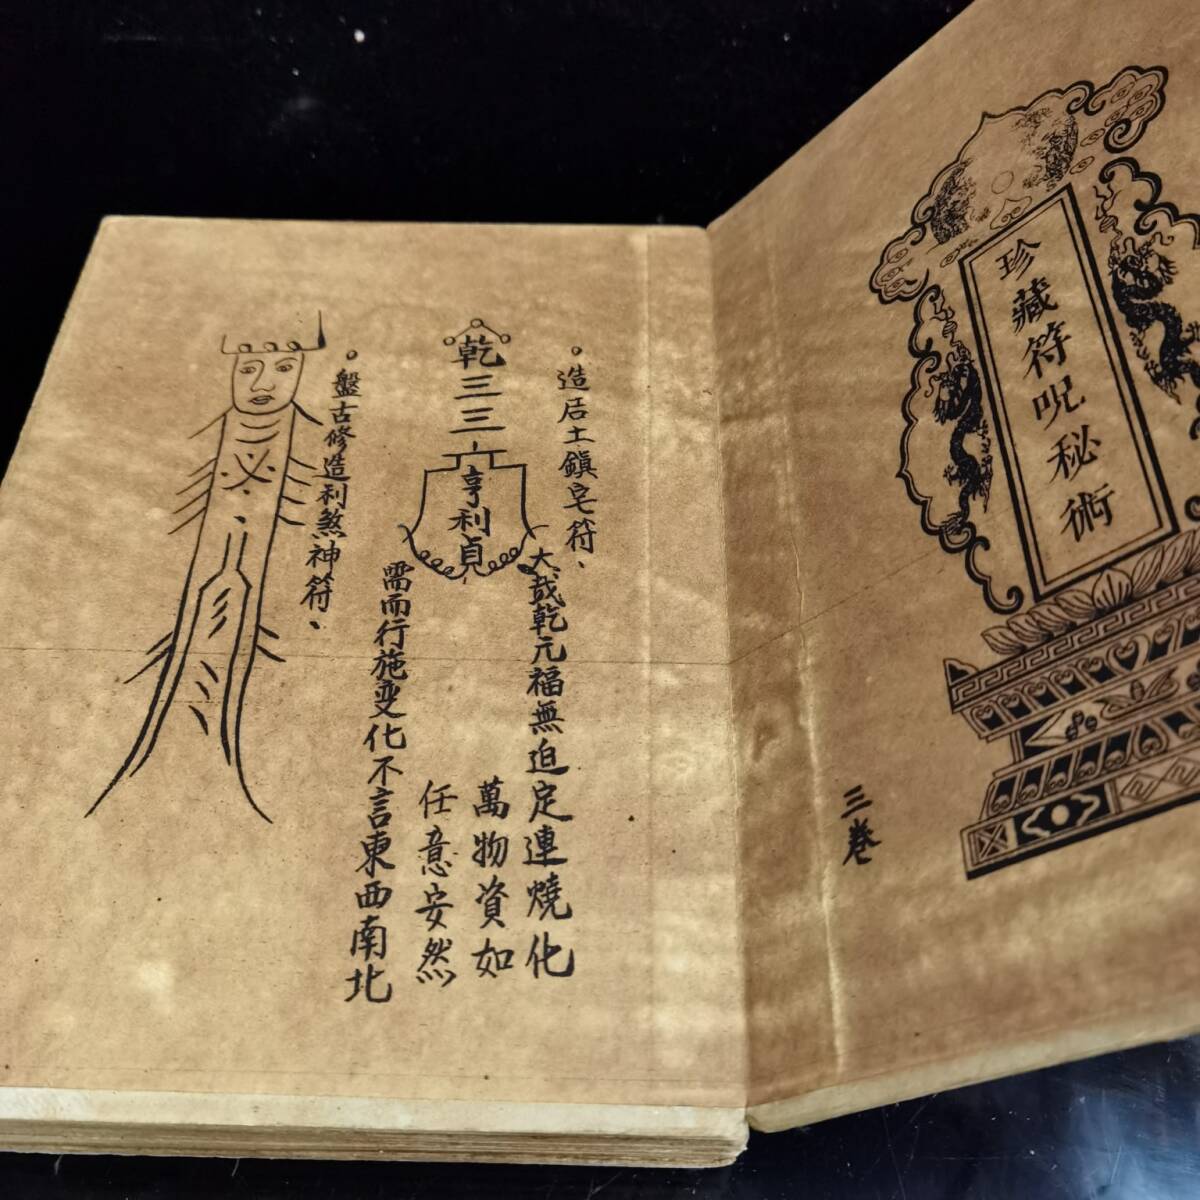 珍藏符呪秘術
三卷
造居土鎮宅符、
乾三三
亨利貞
大哉乾元福無迫定連燒化
萬物資如
任意安然
需而行施变化不言東西南北
盤古修造利煞神符、